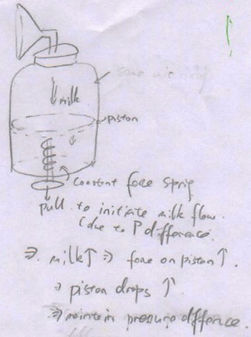 milk
piston
constant force sprig
pull to initiate milk flow.
(due to P difference.
⇒ milk↑ ⇒ force on piston ↑.
⇒ piston drops ↑
⇒ maintain pressure diffence.